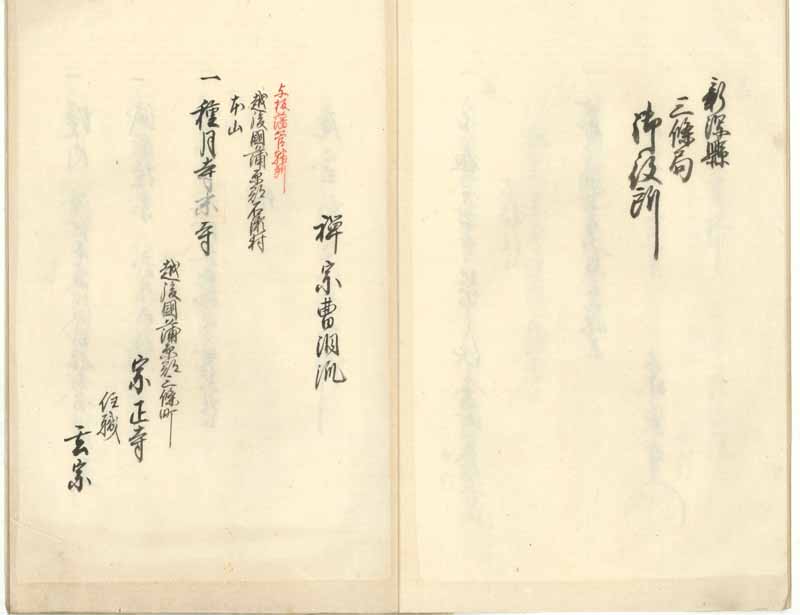 新潟縣
三條局
御役所
禅宗曹洞派
与板藩管轄所
越後國蒲原郡石瀬村
本山
一 種月寺末寺
越後國蒲原郡三條町
宗正寺
住職
玄宗